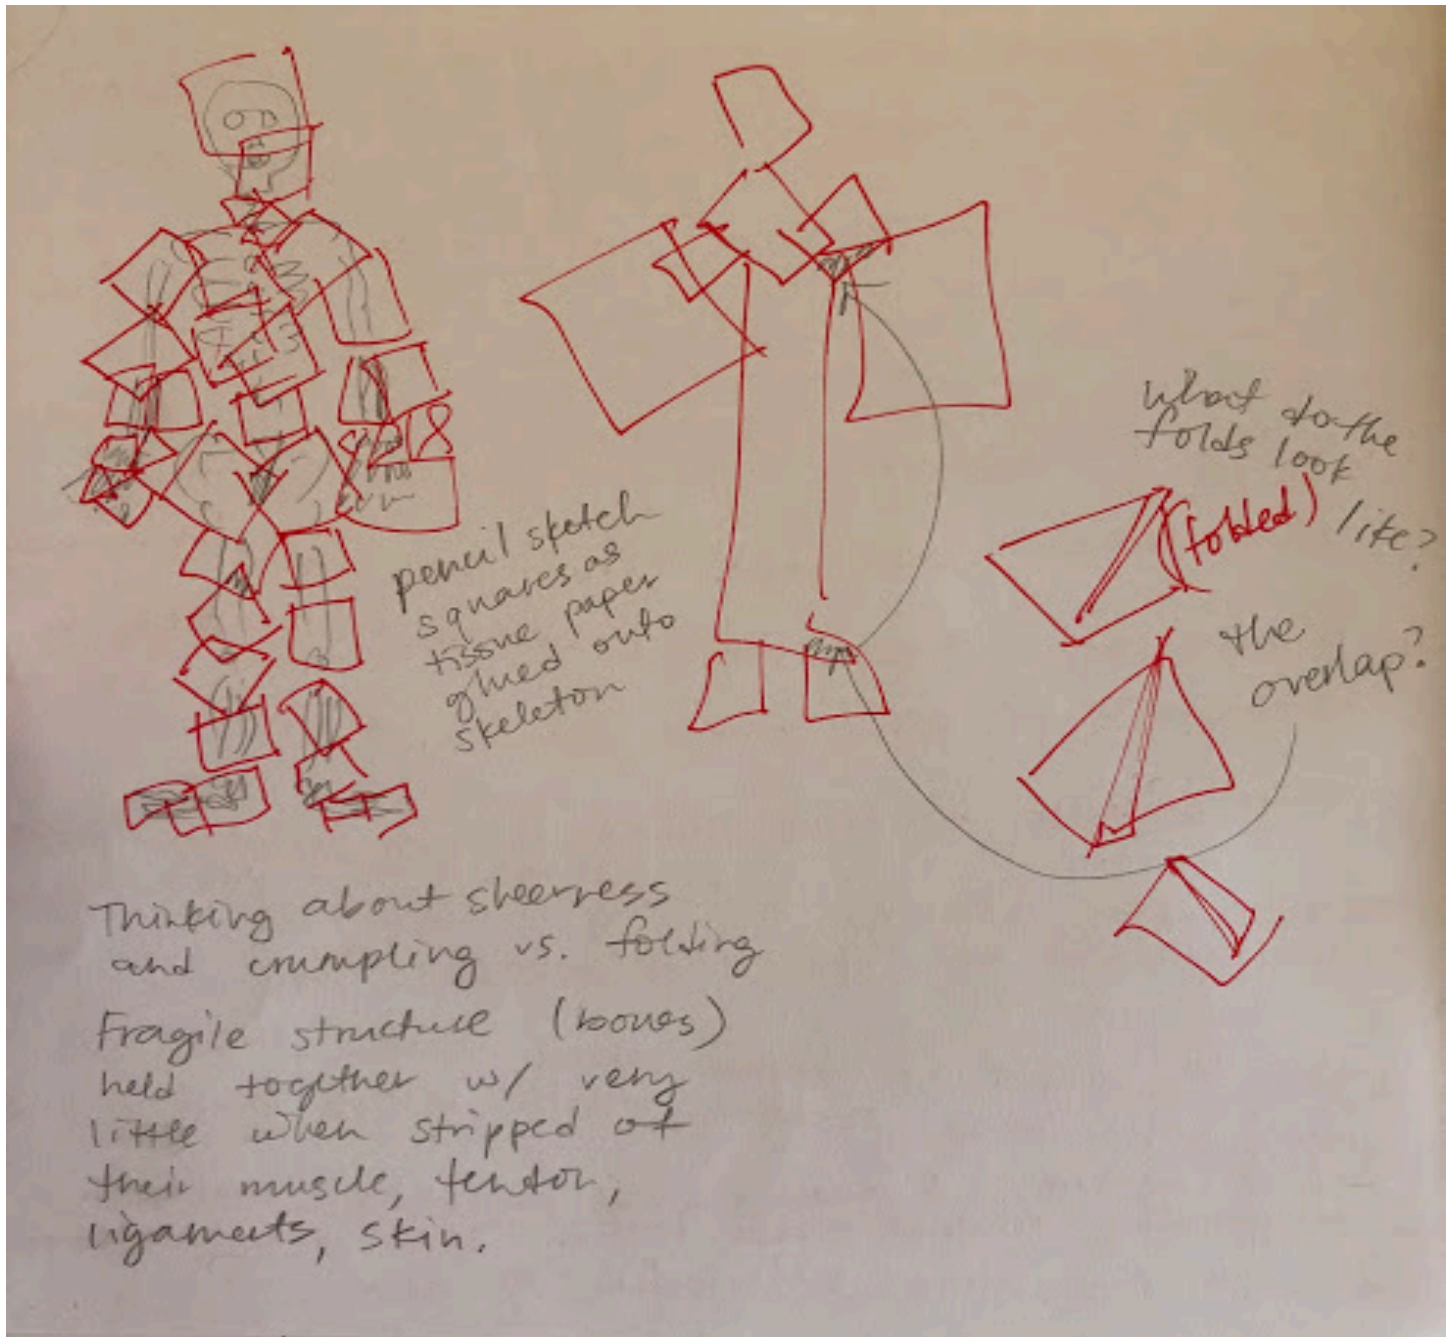 pencil sketch
squares as
tissue paper
glued onto
skeleton
what do the
folds look
(folded) like?
the
overlap?
Thinking about sheerness
and crumpling vs. folding
Fragile structure (bones)
held together w/ very
little when stripped of
their muscle, tendon,
ligaments, skin.